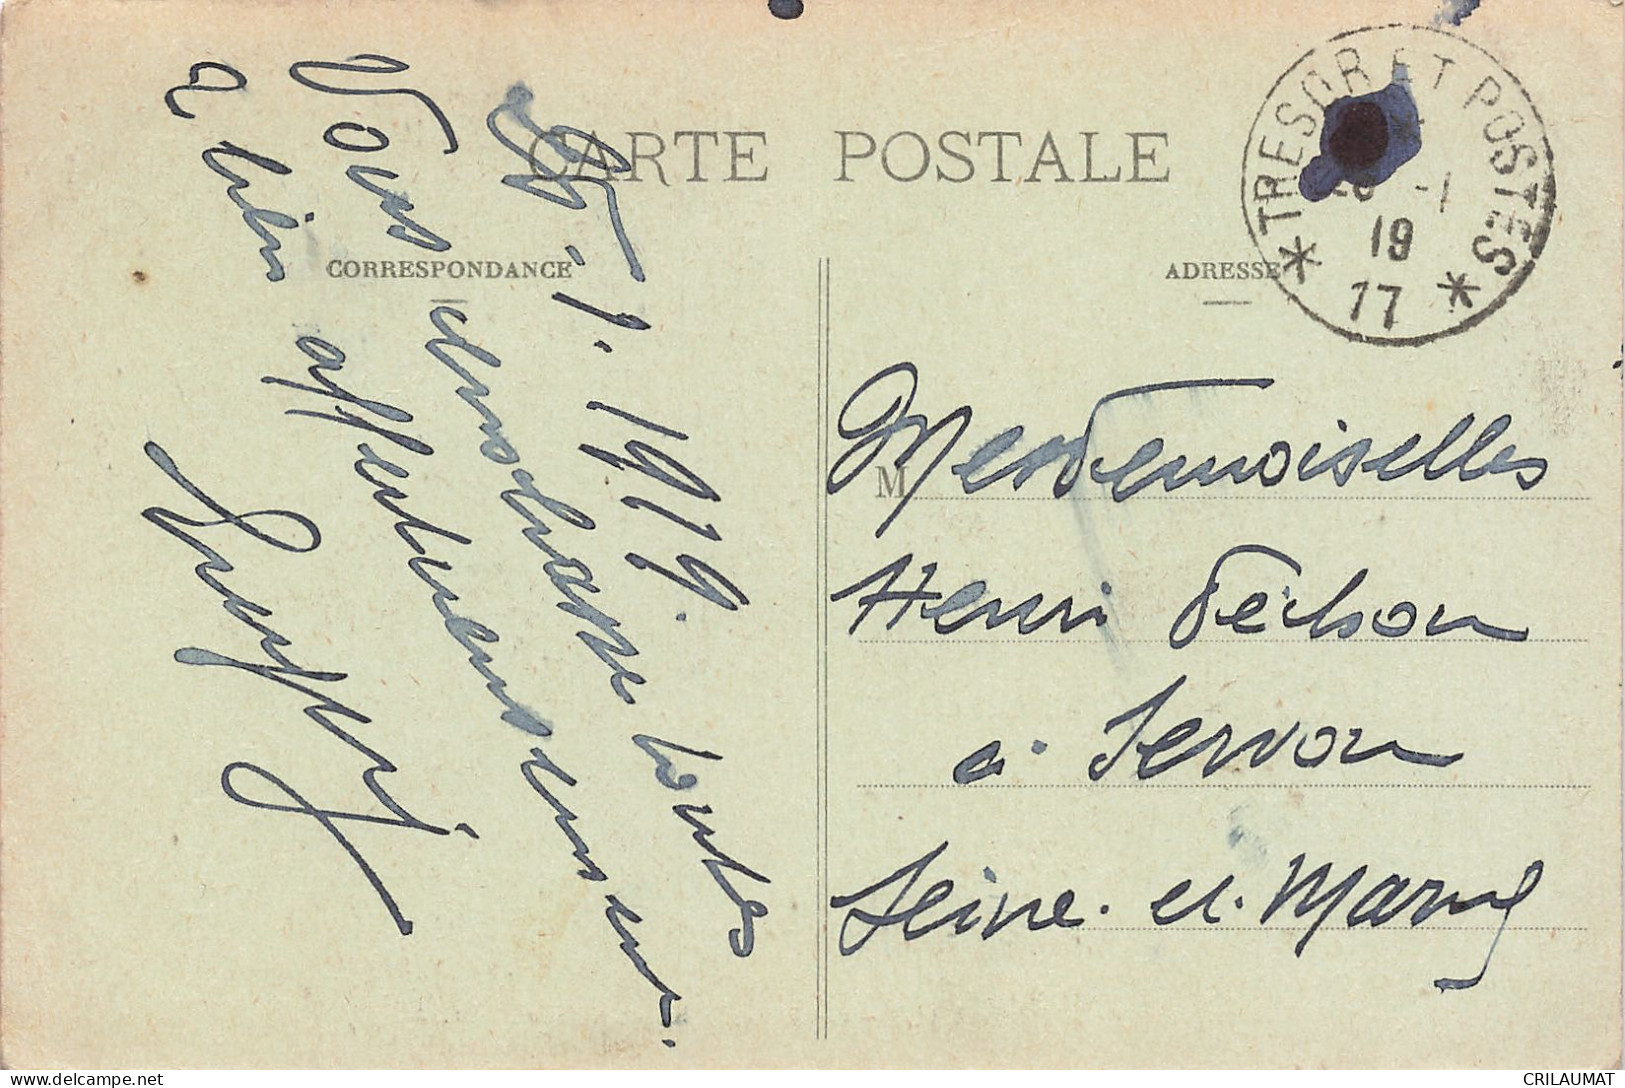 CARTE POSTALE
CORRESPONDANCE
ADRESSE
TRESOR ET POSTES
-1
19
* 17 *
1. 1919.
Vous embrasse toutes
à bien affectueusement.
M
Mesdemoiselles
Henri
à Servon
Seine. et. Marne
CRILAUMAT